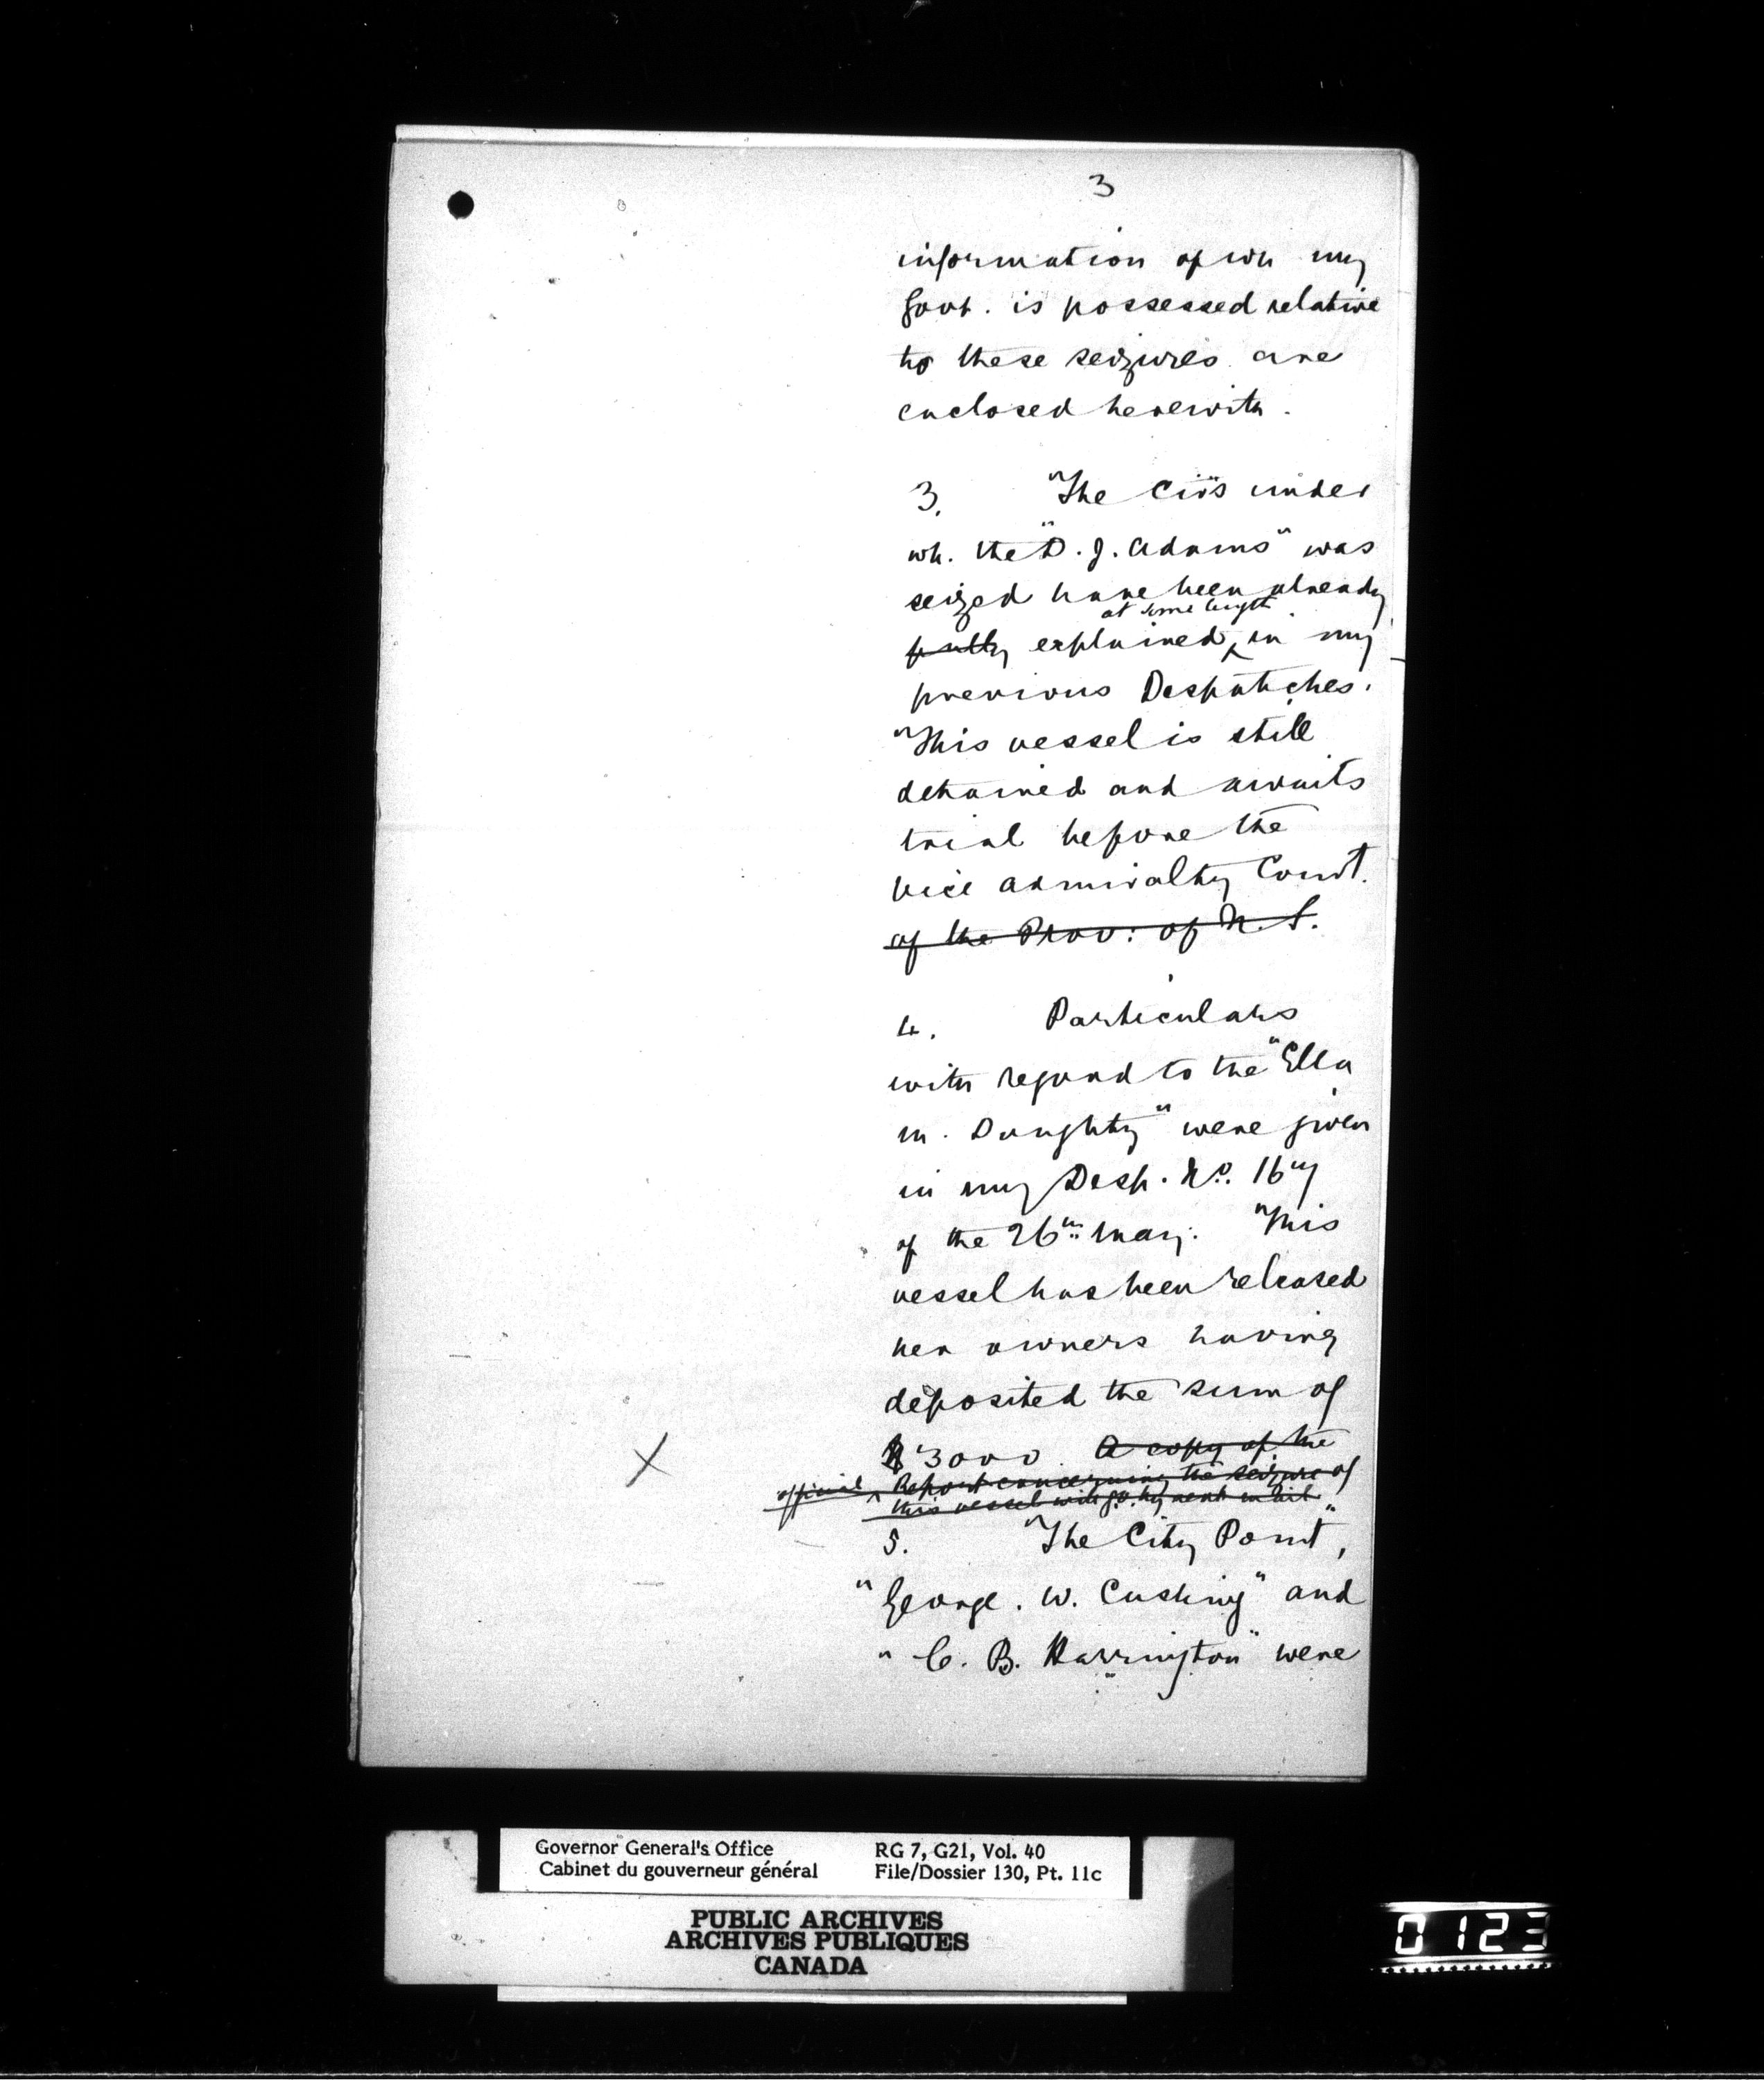 3
information of wh my
Govt. is possessed relative
to these seizures are
enclosed herewith.
3. The Cirs under
wh. the "D. J. Adams" was
seized have been already
at some length
fully explained, in my
previous Despatches.
This vessel is still
detained and awaits
trial before the
Vice Admiralty Court.
of the Prov: of N. S.
4. Particulars
with regard to the "Ella
M. Doughty" were given
in my Desp. No. 167
of the 26th May. This
vessel has been released
her owners having
deposited the sum of
$3000. A copy of the
official Report concerning the seizure of
this vessel will go by next mail
5. The City Point",
"George. W. Cushing" and
"C. B. Harrington" were
Governor General's Office
Cabinet du gouverneur général
RG 7, G21, Vol. 40
File/Dossier 130, Pt. 11c
PUBLIC ARCHIVES
ARCHIVES PUBLIQUES
CANADA
0123